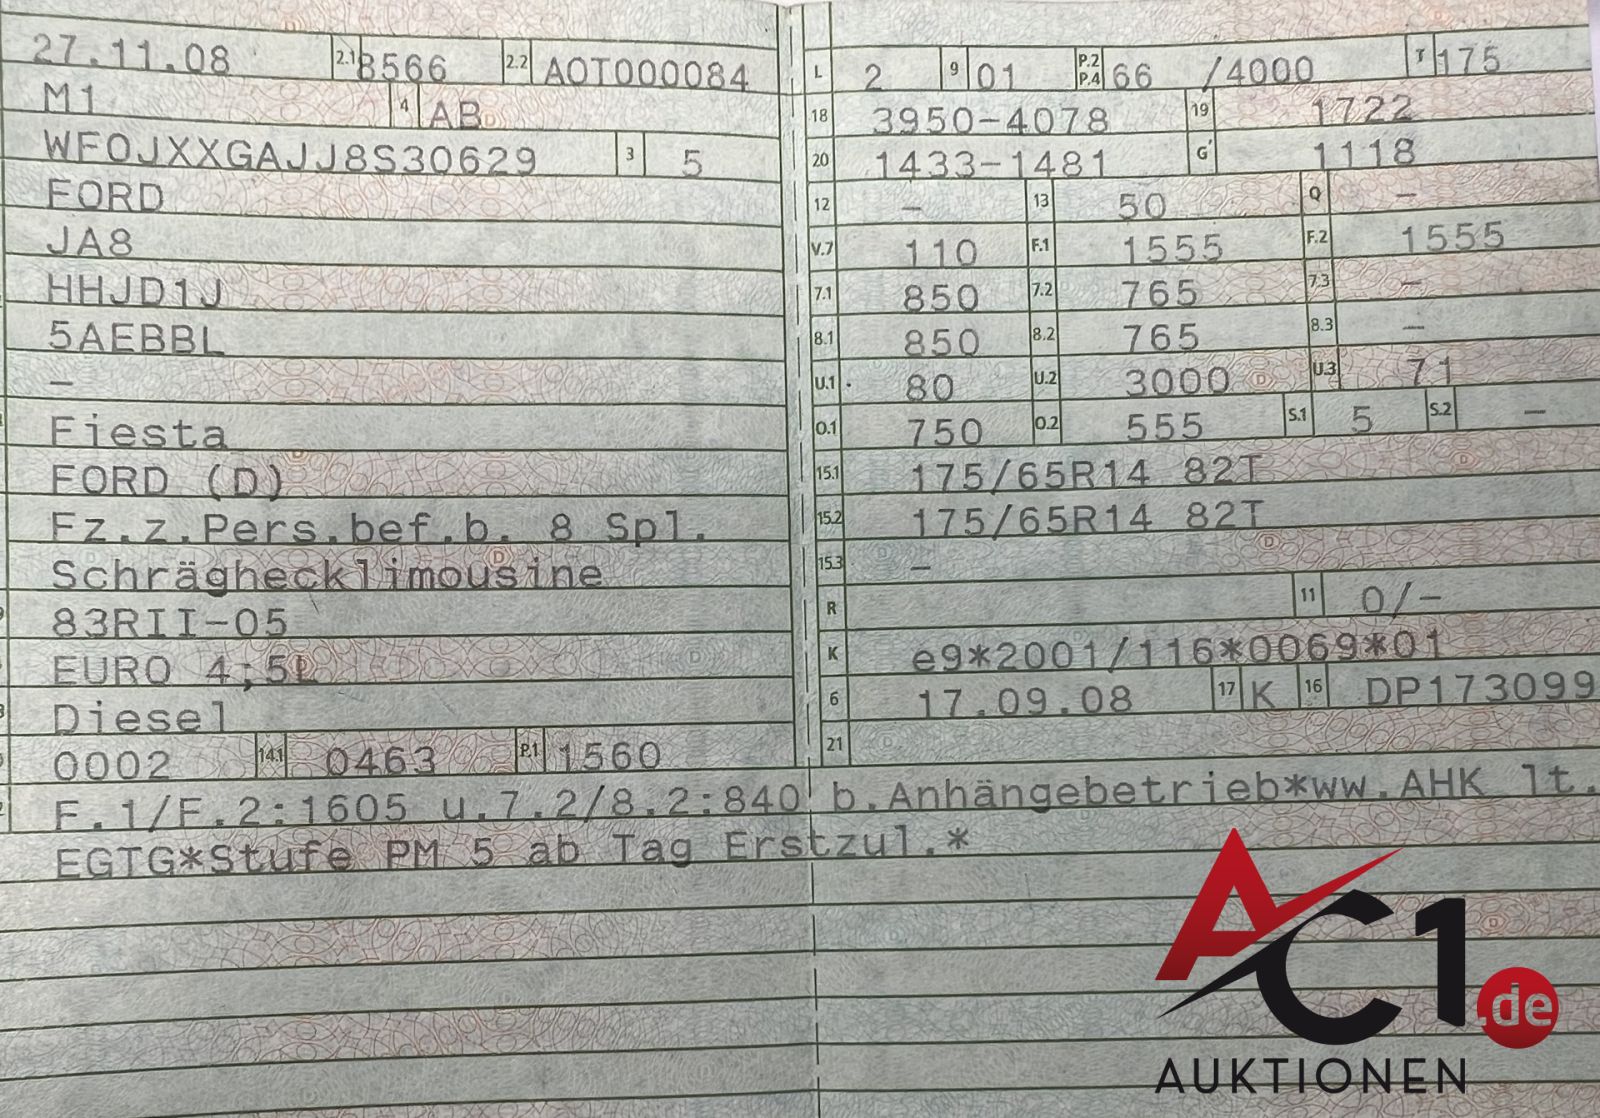 27.11.08 2.1 8566 2.2 AOT000084
M1 4 AB
WF0JXXGAJJ8S30629 3 5
FORD
JA8
HHJD1J
5AEBBL
–
Fiesta
FORD (D)
Fz.z.Pers.bef.b. 8 Spl.
Schräghecklimousine
83RII-05
EURO 4;5L
Diesel
0002 14.1 0463 P.1 1560
L 2 9 01 P.2 P.4 66 /4000 T 175
18 3950-4078 19 1722
20 1433-1481 G 1118
12 – 13 50 Q –
V.7 110 F.1 1555 F.2 1555
7.1 850 7.2 765 7.3 –
8.1 850 8.2 765 8.3 –
U.1 80 U.2 3000 U.3 71
O.1 750 O.2 555 S.1 5 S.2 –
15.1 175/65R14 82T
15.2 175/65R14 82T
15.3 –
R 11 0/–
K e9*2001/116*0069*01
6 17.09.08 17 K 16 DP173099
21
F.1/F.2:1605 u.7.2/8.2:840 b.Anhängebetrieb*ww.AHK lt.
EGTG*Stufe PM 5 ab Tag Erstzul.*
AC1.de
AUKTIONEN